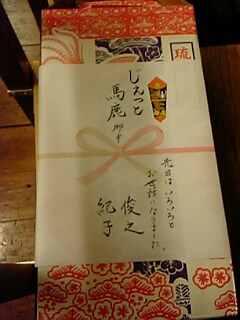 琉
じぇっと
馬鹿 御中
先日はいろいろと
お世話になりました。
俊之
紀子